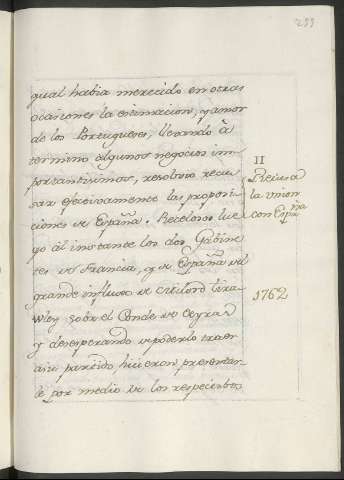 233
qual habia merecido en otras
ocasiones la estimacion, y amor
de los Portugueses, llevando à
termino algunos negocios im
portantisimos, resolvio recu
sar efectivamente las proposi
ciones de España. Recelosos lue
go al instante los dos Gabine
tes de Francia, y de España del
grande influxo de Milord
sobre el Conde de Oeyras
y desesperando de poderlo traer
a su partido, hicieron presentar
le por medio de los respectivos
II
Recusa
la union
con España
1762